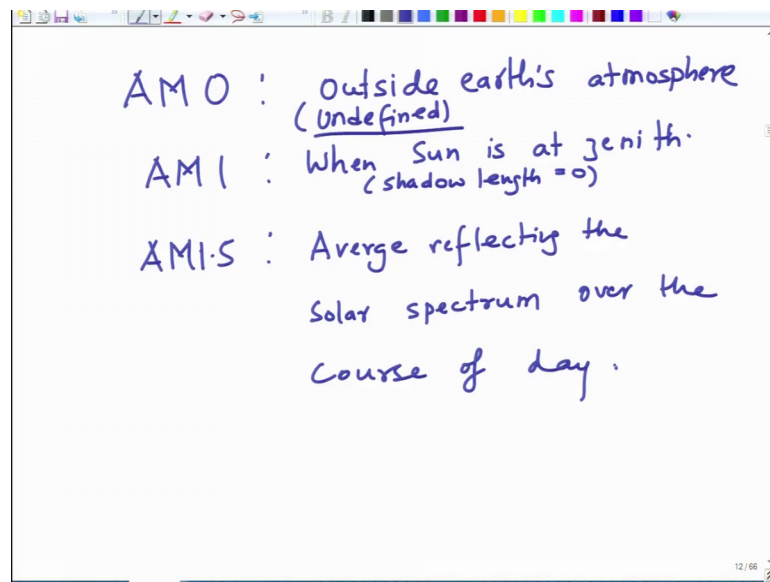 AM0 : Outside earth's atmosphere
(Undefined)
AM1 : When Sun is at zenith.
(shadow length = 0)
AM1.5 : Averge reflecting the
Solar spectrum over the
Course of day.
12 / 66